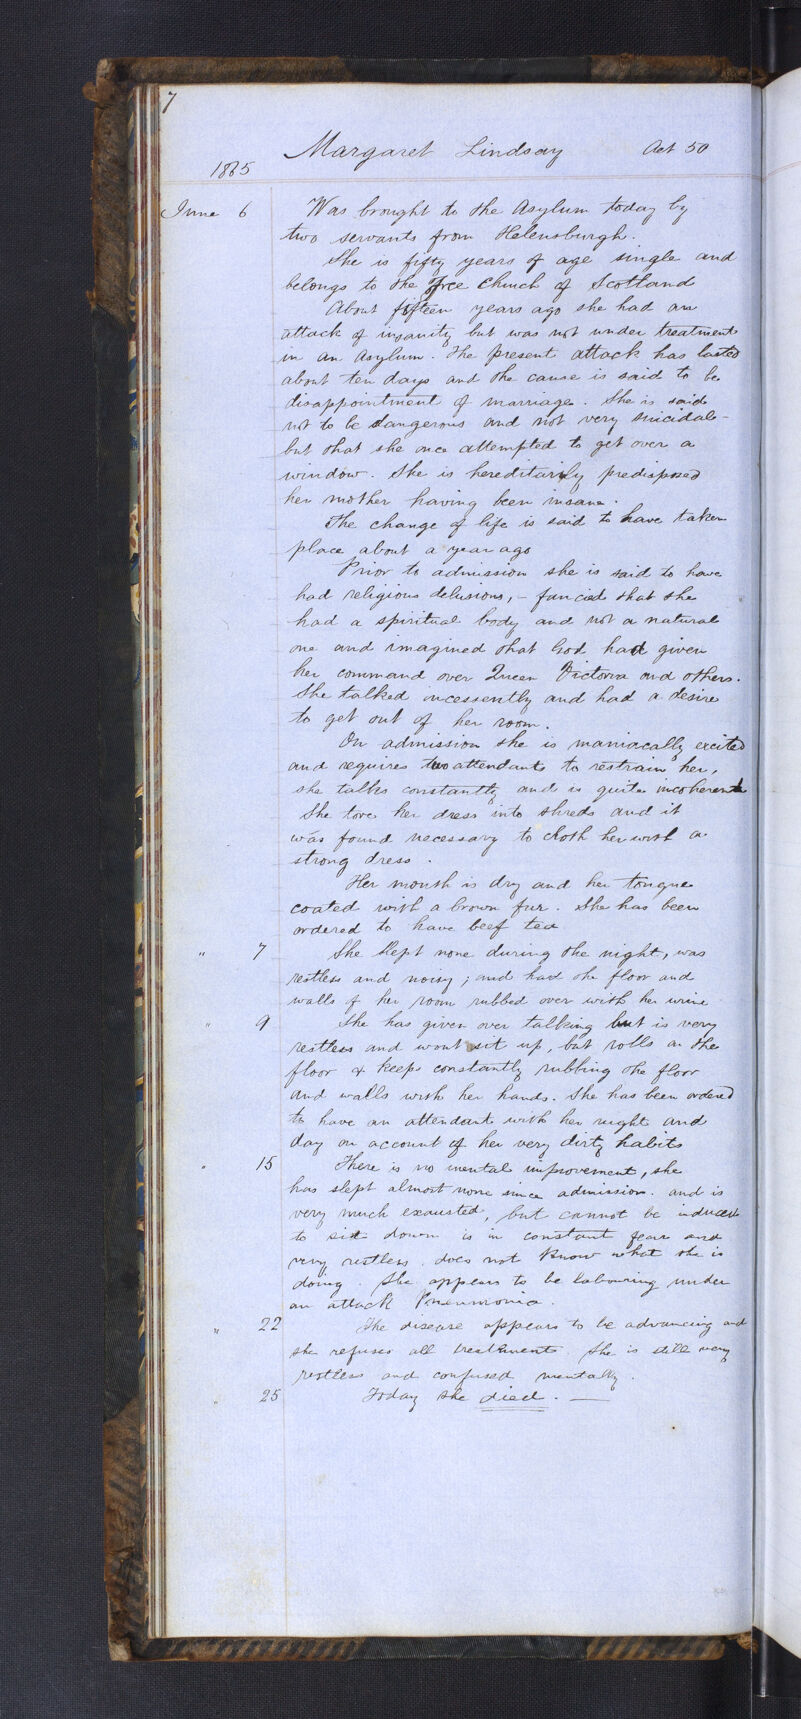 7
Margaret Lindsay Aet 50
1865
June 6 Was brought to the Asylum today by
two servants from Helensburgh.
She is fifty years of age single and
belongs to the Free Church of Scotland
About fifteen years ago she had an
attack of insanity but was not under treatment
in an Asylum. The present attack has lasted
about ten days and the cause is said to be
disappointment of marriage. She is said
not to be dangerous and not very suicidal -
but that she once attempted to get over a
window. She is hereditarily predisposed
her mother having been insane.
The change of life is said to have taken
place about a year ago
Prior to admission she is said to have
had religious delusions, - fancied that she
had a spiritual body and not a natural
one and imagined that God had given
her command over Queen Victoria and others.
She talked incessently and had a desire
to get out of her room.
On admission she is maniacally excited
and requires two attendants to restrain her,
she talks constantly and is quite incoherent
She tore her dress into shreds and it
was found necessary to cloth her with a
strong dress.
Her mouth is dry and her tongue
coated with a brown fur. She has been
ordered to have beef tea
" 7 She slept none during the night, was
restless and noisy; and had the floor and
walls of her room rubbed over with her urine
" 9 She has given over talking but is very
restless and wont sit up, but rolls on the
floor & keeps constantly rubbing the floor
and walls with her hands. She has been ordered
to have an attendant with her night and
day on account of her very dirty habits
" 15 There is no mental improvement, she
has slept almost none since admission. and is
very much exausted, but cannot be induced
to sit down is in constant fear and
very restless. does not know what she is
doing. She appears to be labouring under
an attack Pneumonia.
" 22 The disease appears to be advancing and
she refuses all treatments. She is still very
restless and confused mentally.
" 25 Today she died. —